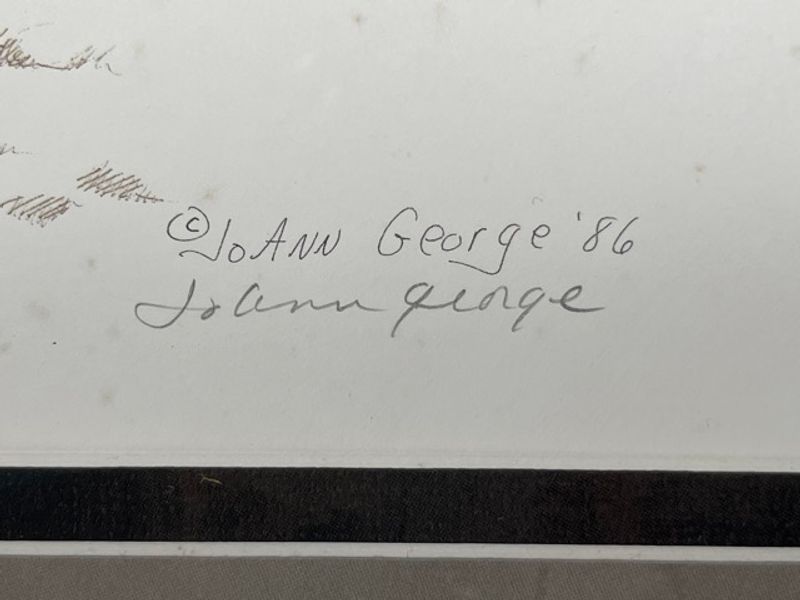 © JoAnn George '86
JoAnn George